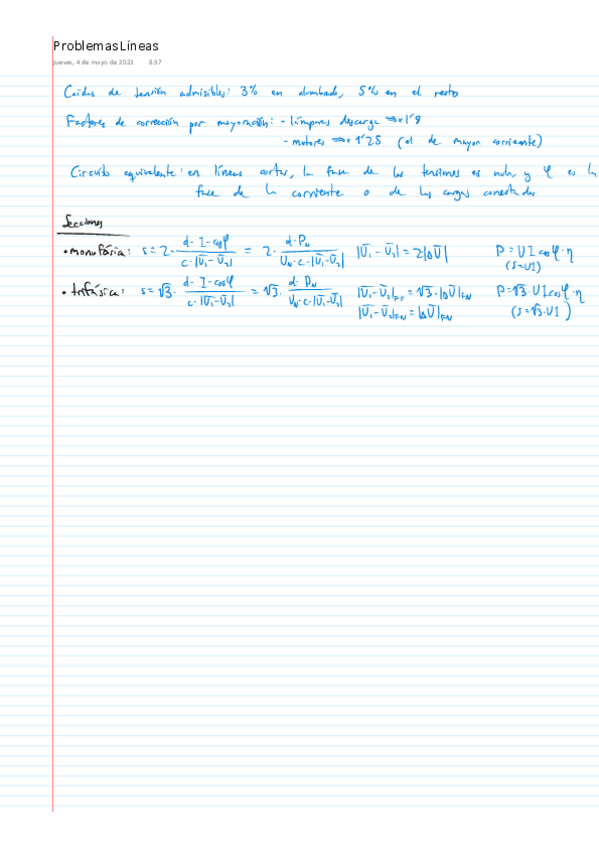 Problemas Líneas
jueves, 4 de mayo de 2023 8:37
Caídas de tensión admisibles: 3% en alumbrado, 5% en el resto
Factores de corrección por mayoración: - lámparas descarga ⇒ × 1'8
- motores ⇒ × 1'25 (el de mayor corriente)
Circuito equivalente: en líneas cortas, la fase de las tensiones es nula y φ es la
fase de la corriente o de las cargas conectadas
Secciones
• monofásica: s = 2· d·I·cosφ / c·|U̅₁-U̅₂| = 2· d·Pₙ / Uₙ·c·|U̅₁-U̅₂| |U̅₁-U̅₂| = 2|ΔU̅| P = UI cosφ·η
(S=UI)
• trifásica: s = √3· d·I·cosφ / c·|U̅₁-U̅₂| = √3· d·Pₙ / Uₙ·c·|U̅₁-U̅₂| |U̅₁-U̅₂|FF = √3·|ΔU̅|FN P=√3·UI cosφ·η
|U̅₁-U̅₂|FN = |ΔU̅|FN (S=√3·UI)